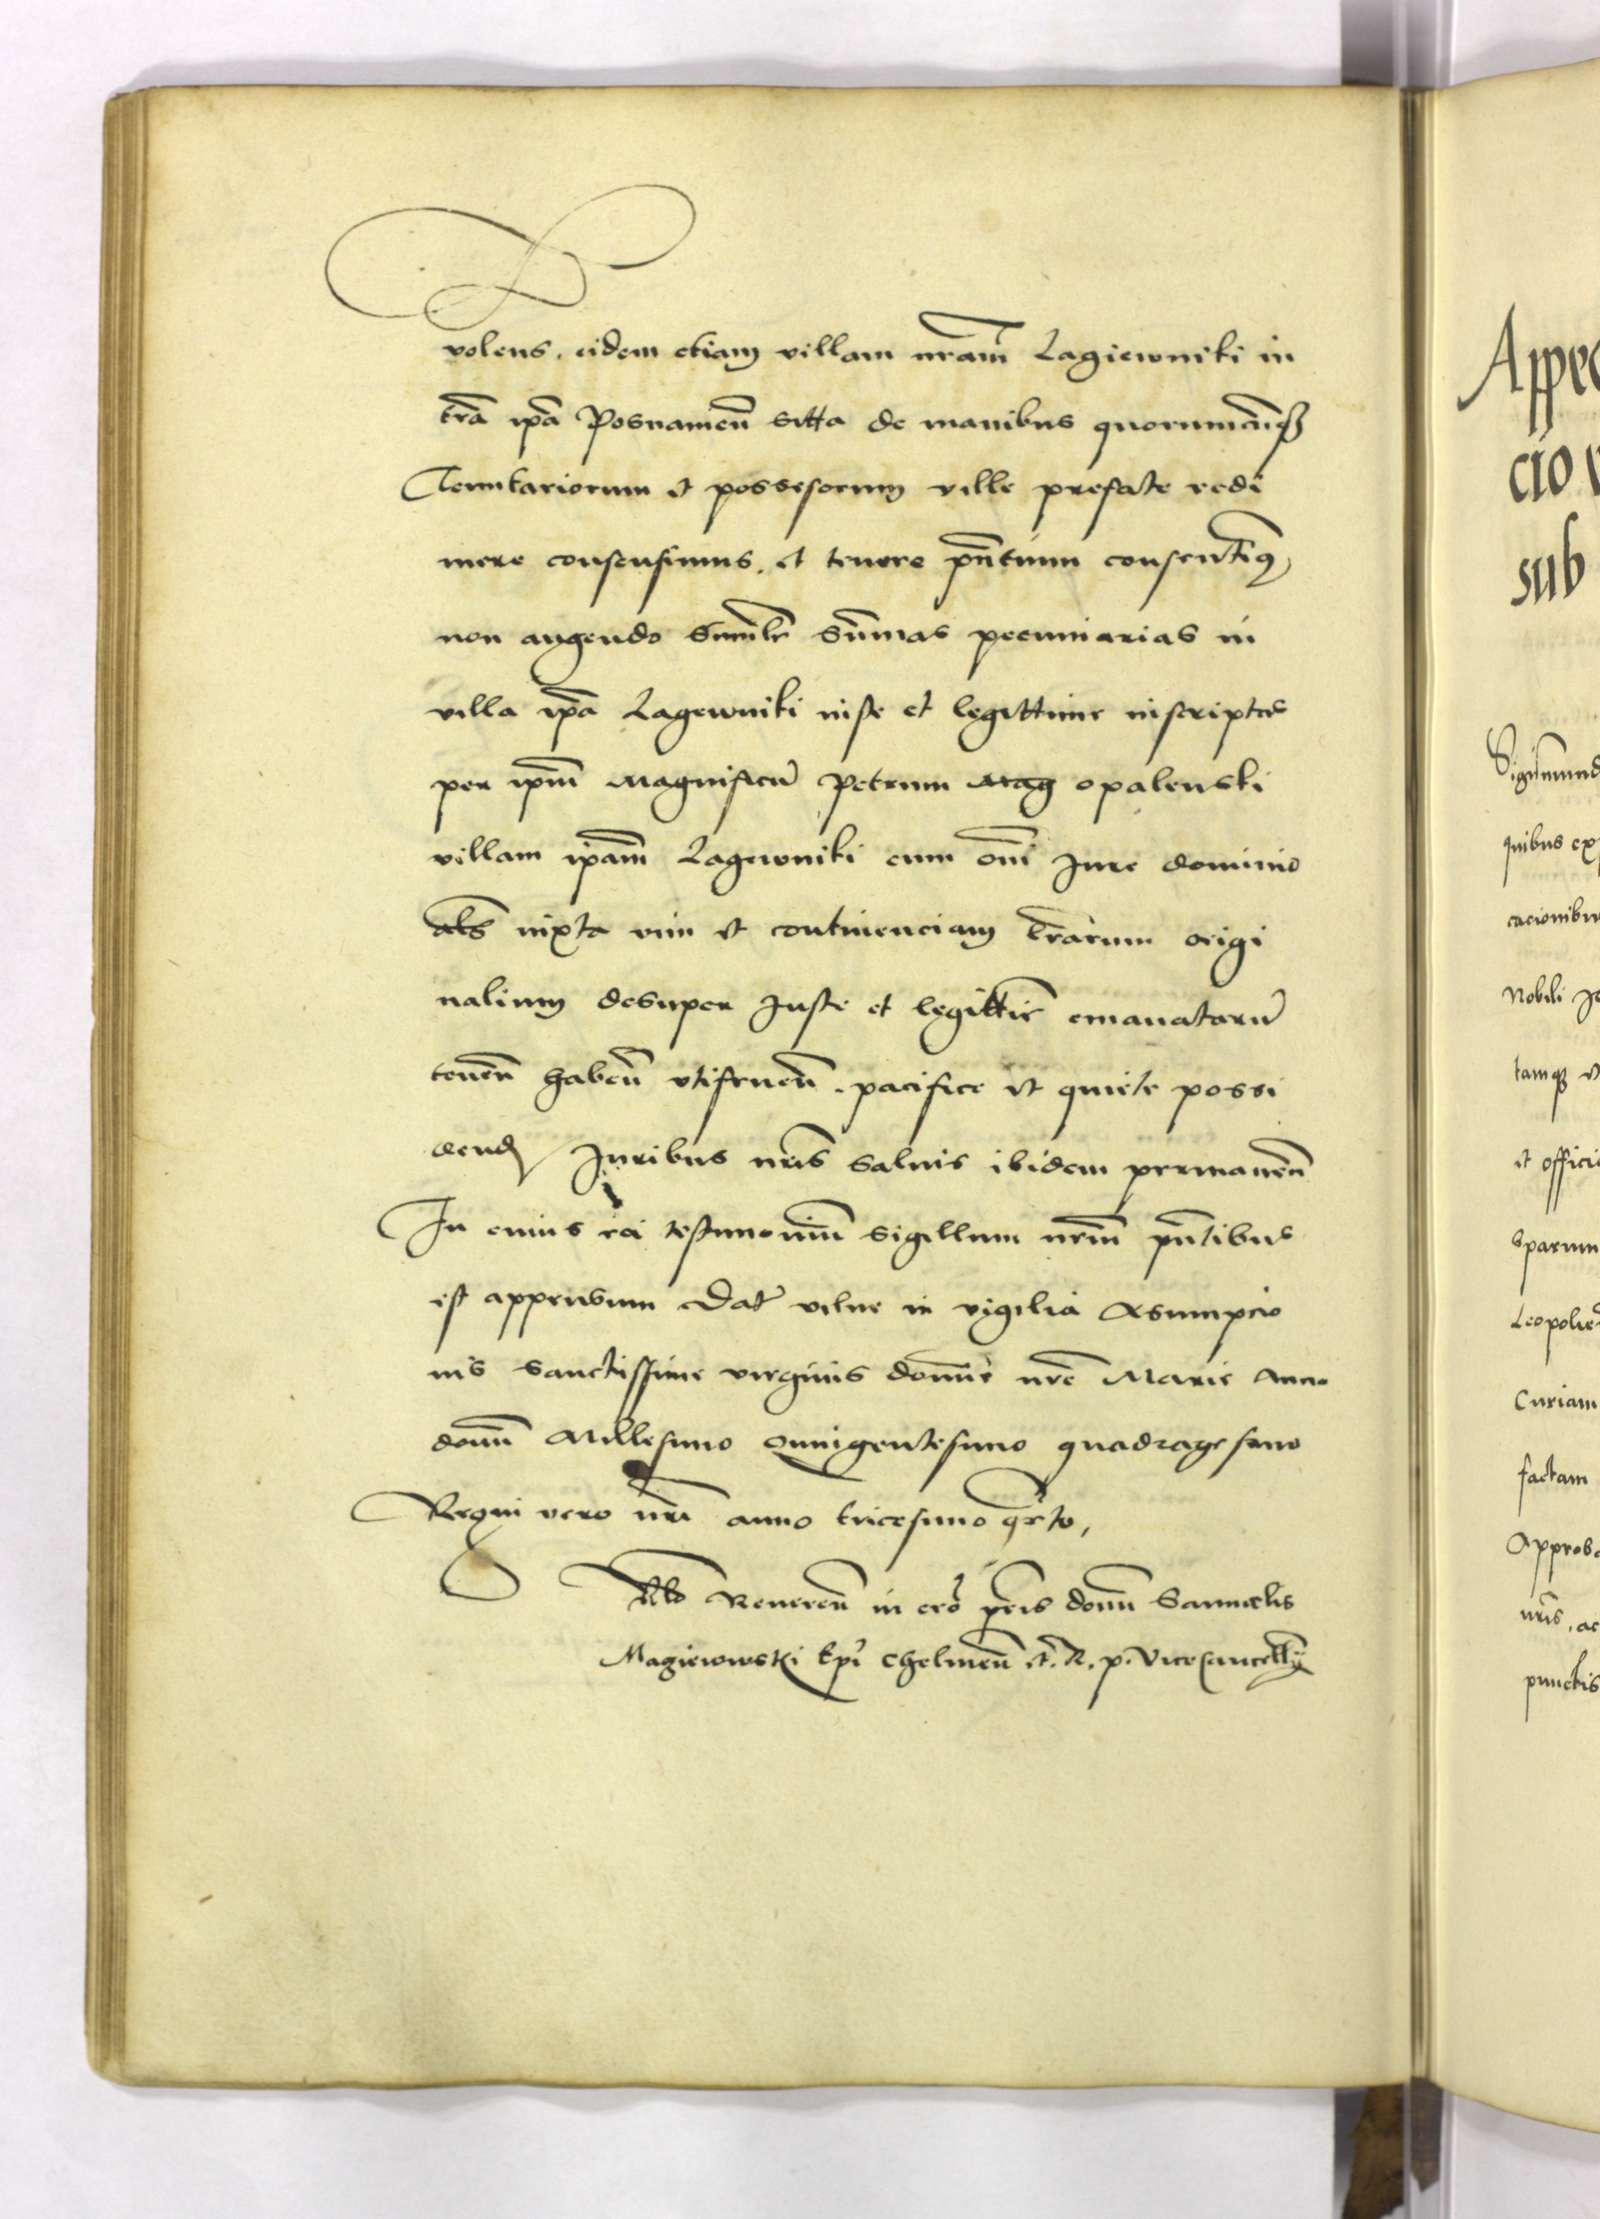 volens. eidem etiam villam nr̃am Lagiewniki in
tr̃a ip̃a Posnamen̄ sitta de manibus quorumcunq3
Tenutariorum et possesorum ville prefate redi
mere consensimus. et tenore pn̄tium consentim9
non augendo Sum̄lr sum̄as pecuniarias in
villa ip̃a Lagewniki iuste et legittime inscriptas
per ip̃m Magnificū Petrum Mag opalenski
villam ip̃am Lagewniki cum om̄i Jure dominio
al̃s iuxta vim et continenciam lr̃arum origi
nalium desuper Juste et legittiẽ emanatarū
tenen̄ haben̄ vtifruen̄. pacifice et quiete possi
dend Juribus nr̃is saluis ibidem permanen̄
In cuius rei testimoniū Sigillum nr̃m pn̄tibus
est appensum Dat̃ vilne in vigilia Asumpcio
nis sanctissime virginis domīe nr̃e Marie Anno
domī Millesimo Quingentesimo quadragesimo
Regni vero nr̃i anno tricesimo qr̃to,
Rlo Reueren̄ in cr̃o pr̃is domī Samuelis
Magieiowski Ep̃i Chelmen̄ et. R. p. Vicecancellỹ
Appe
cio v
sub
Sigismund
quibus exp
cacionibu
Nobili Jo
tamq3 v
et offici
sparum
Leopolien
Curiam
factam
Approba
nr̃is, ac
punctis